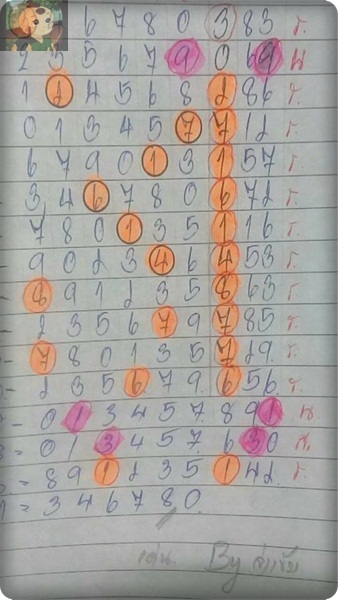 6 7 8 0 3 83 ร.
2 5 5 6 7 9 0 69 น
1 2 4 5 6 8 2 86 ร.
0 1 3 4 5 7 7 12 ร.
6 7 9 0 1 3 1 57 ร.
3 4 6 7 8 0 6 72 ร.
7 8 0 1 3 5 1 16 ร.
9 0 2 3 4 6 4 53 ร.
8 9 1 2 3 5 8 63 ร.
2 3 5 6 7 9 7 85 ร.
7 8 0 1 3 5 7 29 ร.
2 3 5 6 7 9 6 56 ร.
0 1 3 4 5 7 8 91 น.
0 1 3 4 5 7 6 30 น.
= 8 9 1 2 3 5 1 42 ร.
= 3 4 6 7 8 0
เด่น By